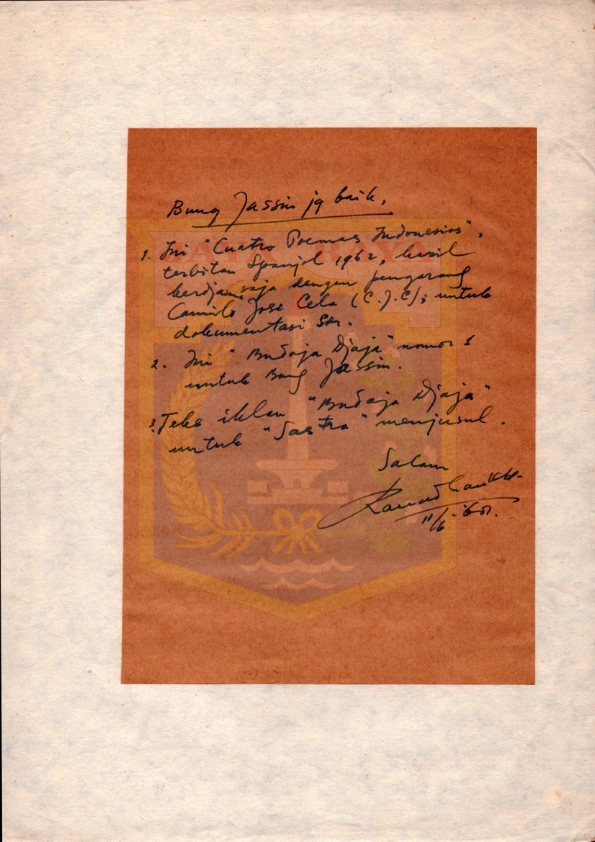 Bung Jassin jg baik,
1. Ini "Cuatro Poemas Indonesios",
terbitan Spanjol 1962, hasil
kerdja saja dengan pengarang
Camilo José Cela (C.J.C); untuk
dokumentasi Sdr.
2. Ini "Budaja Djaja" nomor 1
untuk Bung Jassin.
3. Teks iklan "Budaja Djaja"
untuk "Sastra" menjusul.
Salam
Ramadhan KH.
11/6-'68.
JAYA RAYA